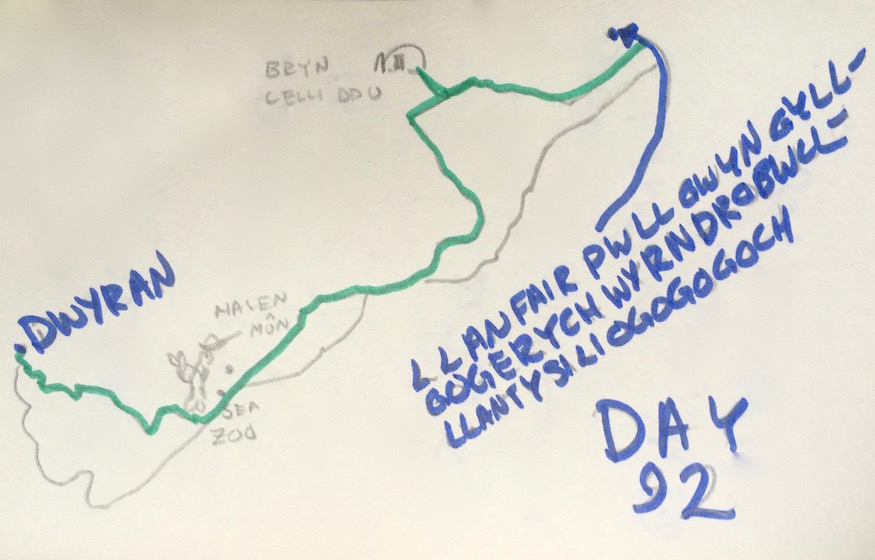 BRYN
CELLI DDU
DWYRAN
HALEN
MÔN
SEA
ZOO
LLANFAIR PWLL GWYN GYLL-
GOGERYCH WYRNDROBWLL-
LLANTYSILIOGOGOGOCH
DAY
92